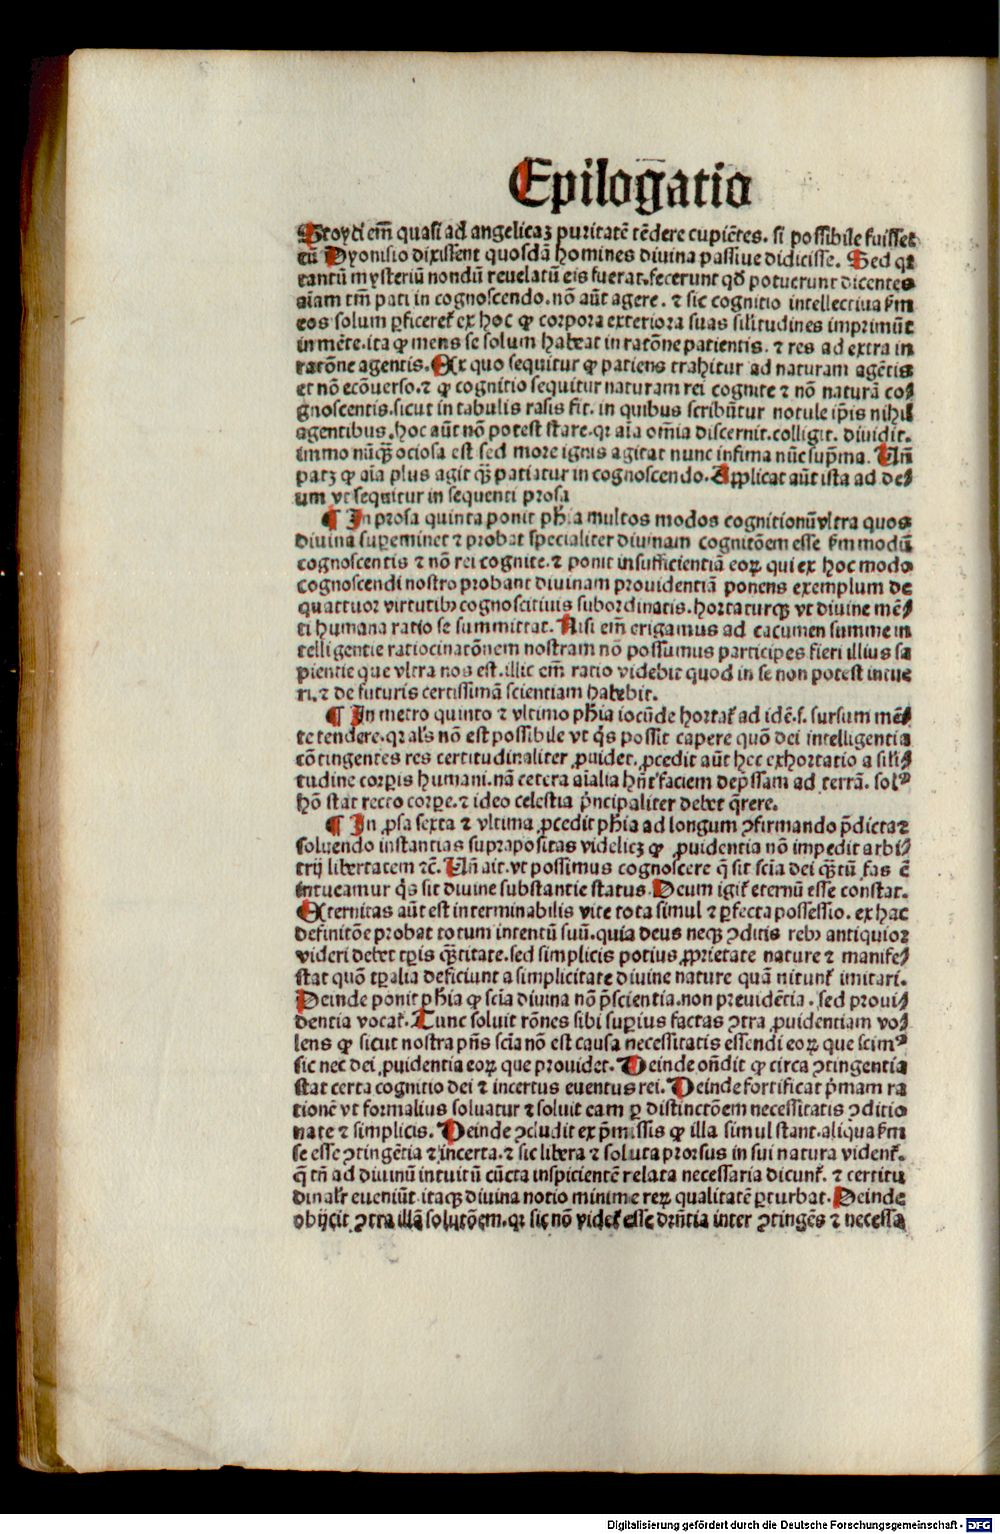 Epilogatio
Stoyci em̄ quasi ad angelicaꝫ puritatē tēdere cupiētes. si possibile fuisset
cū Dyonisio dixissent quosdā homines diuina passiue didicisse. Sed qꝛ
tantū mysteriū nondū reuelatū eis fuerat. fecerunt qd̄ potuerunt dicentes
aīam tm̄ pati in cognoscendo. nō aūt agere. ⁊ sic cognitio intellectiua ẜm
eos solum ꝑficeret᷑ ex hoc ꝙ corpora exteriora suas sil̄itudines imprimūt
in mēte. ita ꝙ mens se solum habeat in ratōne patientis. ⁊ res ad extra in
ratōne agentis. Ex quo sequitur ꝙ patiens trahitur ad naturam agētis
et nō ecōuerso. ⁊ ꝙ cognitio sequitur naturam rei cognite ⁊ nō naturā co⸗
gnoscentis. sicut in tabulis rasis fit. in quibus scribūtur notule ip̄is nihil
agentibus. hoc aūt nō potest stare. qꝛ aīa om̄ia discernit. colligit. diuidit.
immo nūqꝫ̄ ociosa est sed more ignis agitat nunc infima nūc sup̄ma. Un̄
patꝫ ꝙ aīa plus agit qꝫ̄ patiatur in cognoscendo. Applicat aūt ista ad de⸗
um vt sequitur in sequenti prosa
¶ In prosa quinta ponit ph̄ia multos modos cognitionū vltra quos
diuina suꝑeminet ⁊ probat specialiter diuinam cognitōem esse ẜm modū
cognoscentis ⁊ nō rei cognite. ⁊ ponit insufficientiā eoꝝ qui ex hoc modo
cognoscendi nostro probant diuinam prouidentiā ponens exemplum de
quattuor virtutibꝫ cognoscitiuis subordinatis. hortaturqꝫ vt diuine mē⸗
ti humana ratio se summittat. Nisi em̄ erigamus ad cacumen summe in
telligentie ratiocinatōnem nostram nō possumus participes fieri illius sa
pientie que vltra nos est. illic em̄ ratio videbit quod in se non potest intue
ri. ⁊ de futuris certissimā scientiam habebit.
¶ In metro quinto ⁊ vltimo ph̄ia iocūde hortat᷑ ad idē. s. sursum mē⸗
te tendere. qꝛ al̄s nō est possibile vt q̄s possit capere quō dei intelligentia
cōtingentes res certitudinaliter ꝓuidet. ꝓcedit aūt hec exhortatio a sil̄i⸗
tudine corꝑis humani. nā cetera aīalia hn̄t faciem dep̄ssam ad terrā. solꝰ
hō stat recto corꝑe. ⁊ ideo celestia p̄ncipaliter debet q̄rere.
¶ In ꝓsa sexta ⁊ vltima ꝓcedit ph̄ia ad longum ꝯfirmando p̄dicta ⁊
soluendo instantias suprapositas videlicꝫ ꝙ ꝓuidentia nō impedit arbi⸗
trij libertatem ⁊c̄. Un̄ ait. vt possimus cognoscere q̄ sit scīa dei qꝫ̄tū fas ē
intueamur q̄s sit diuine substantie status. Deum igit᷑ eternū esse constat.
Eternitas aūt est interminabilis vite tota simul ⁊ ꝑfecta possessio. ex hac
definitōe probat totum intentū suū. quia deus neqꝫ ꝯditis rebꝫ antiquior
videri debet tꝑis qꝫ̄titate. sed simplicis potius ꝓprietate nature ⁊ manife⸗
stat quō tꝑalia deficiunt a simplicitate diuine nature quā nitunt᷑ imitari.
Deinde ponit ph̄ia ꝙ scīa diuina nō p̄scientia. non preuidētia. sed proui⸗
dentia vocat᷑. Tunc soluit rōnes sibi suꝑius factas ꝯtra ꝓuidentiam vo⸗
lens ꝙ sicut nostra pn̄s scīa nō est causa necessitatis essendi eoꝝ que scimꝰ
sic nec dei ꝓuidentia eoꝝ que prouidet. Deinde on̄dit ꝙ circa ꝯtingentia
stat certa cognitio dei ⁊ incertus euentus rei. Deinde fortificat p̄mam ra
tionē vt formalius soluatur ⁊ soluit eam ꝑ distinctōem necessitatis ꝯditio
nate ⁊ simplicis. Deinde ꝯcludit ex p̄missis ꝙ illa simul stant. aliqua ẜm
se esse ꝯtingētia ⁊ incerta. ⁊ sic libera ⁊ soluta prorsus in sui natura vident᷑.
q̄ tn̄ ad diuinū intuitū cūcta inspicientē relata necessaria dicunt᷑. ⁊ certitu
dinalr̄ eueniūt. itaqꝫ diuina notio minime reꝝ qualitatē ꝑturbat. Deinde
obijcit ꝯtra illā solutōem. qꝛ sic nō videt᷑ esse drn̄tia inter ꝯtingēs ⁊ necessa
Digitalisierung gefördert durch die Deutsche Forschungsgemeinschaft - DFG